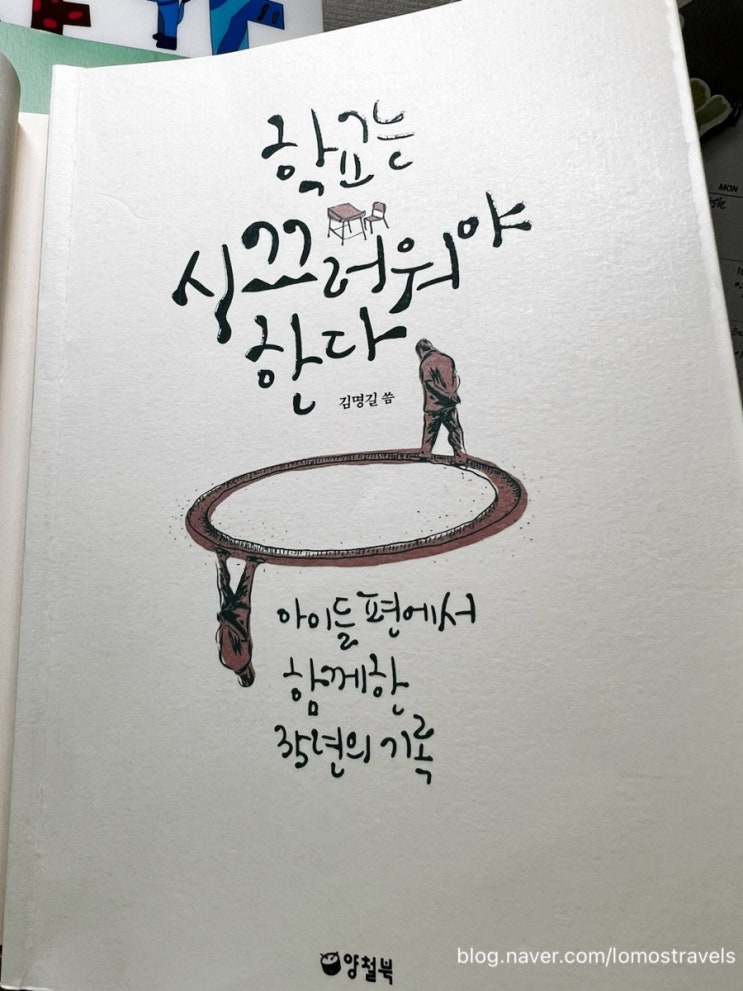 학교는
시끄러워야
한다
김명길 씀
아이들 편에서
함께한
기록
양철북
MON
blog.naver.com/lomostravels